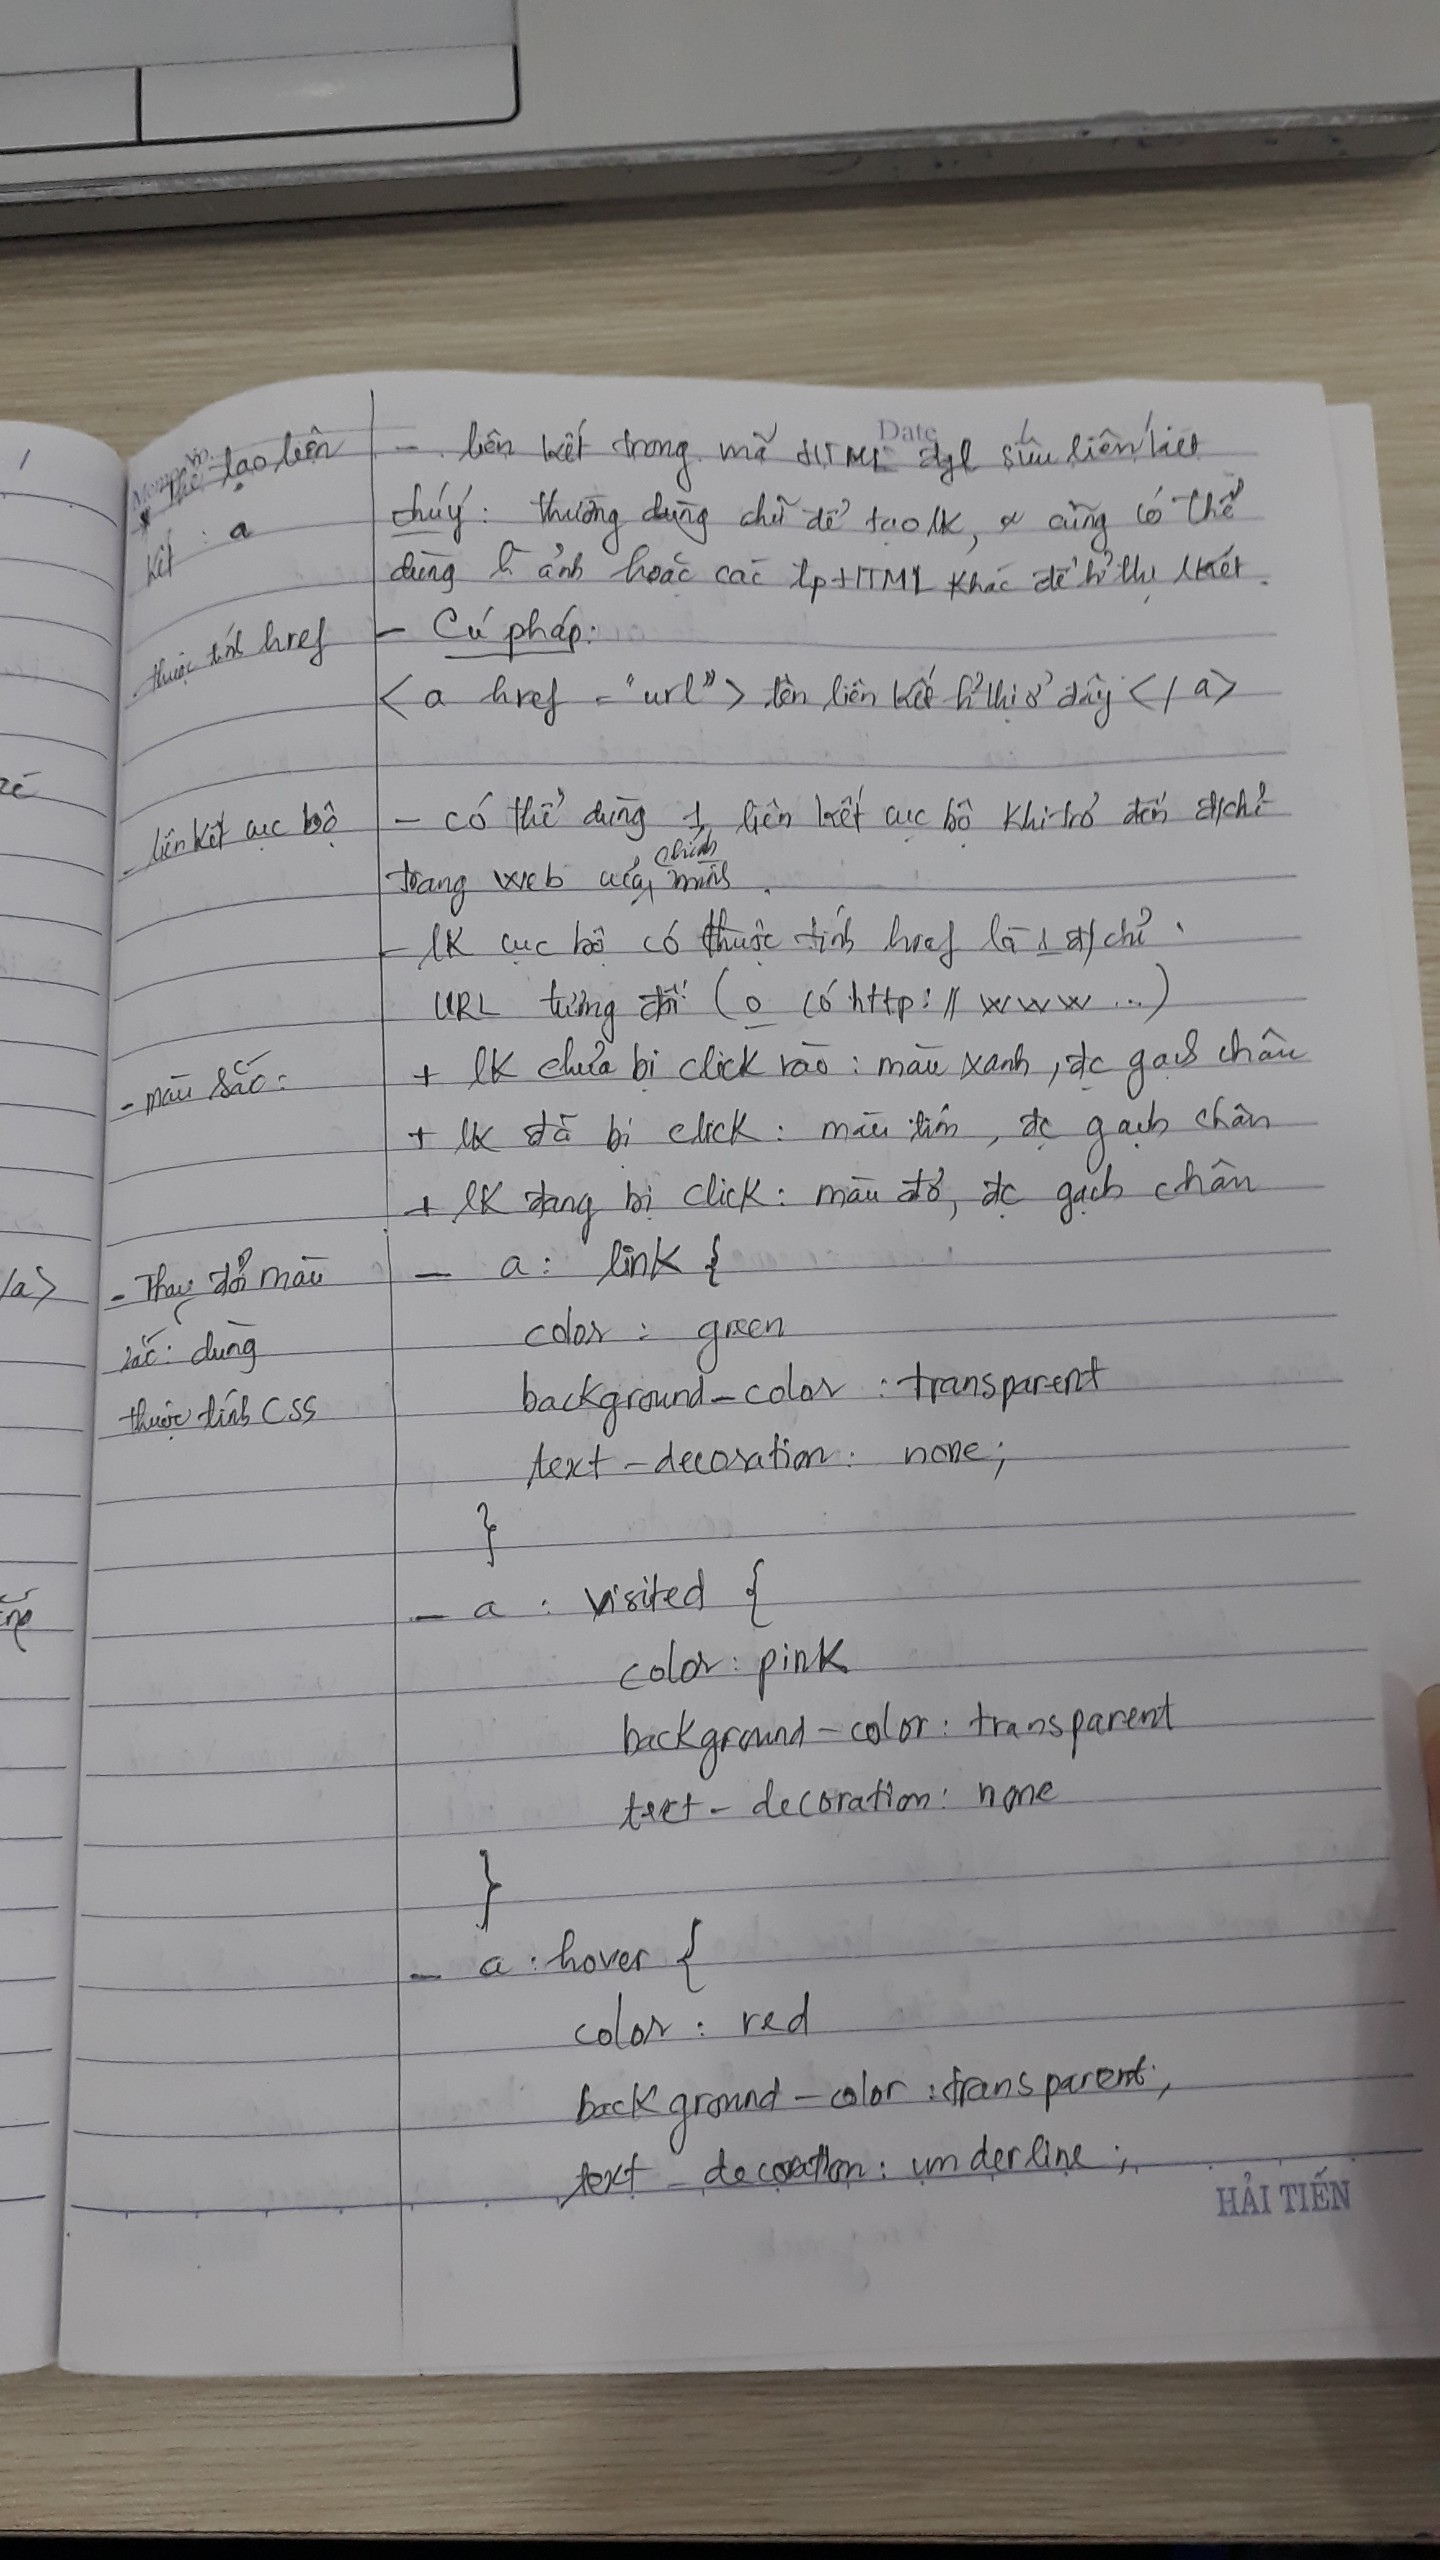 Date
* Thẻ tạo liên
kết : a
- liên kết trong mã HTML đgl siêu liên kết
chú ý: thường dùng chữ để tạo lk, cũng có thể
dùng h` ảnh hoặc các tp HTML khác để h² thị lkết.
- thuộc tính href
- Cú pháp:
<a href = "url"> tên liên kết h² thị ở đây </a>
- liên kết cục bộ
- có thể dùng 1 liên kết cục bộ khi trỏ đến đ/chỉ
trang web của chính mình.
- lk cục bộ có thuộc tính href là 1 đ/chỉ
URL tương đối (o có http://www...)
- màu sắc:
+ lk chưa bị click vào : màu xanh, đc gạch chân
+ lk đã bị click : màu tím, đc gạch chân
+ lk đang bị click : màu đỏ, đc gạch chân
- Thay đổi màu
sắc: dùng
thuộc tính CSS
- a : link {
color : green
background-color : transparent
text-decoration : none;
}
- a : visited {
color : pink
background-color : transparent
text-decoration : none
}
- a : hover {
color : red
background-color : transparent;
text-decoration : underline;
HẢI TIẾN
1
/a>